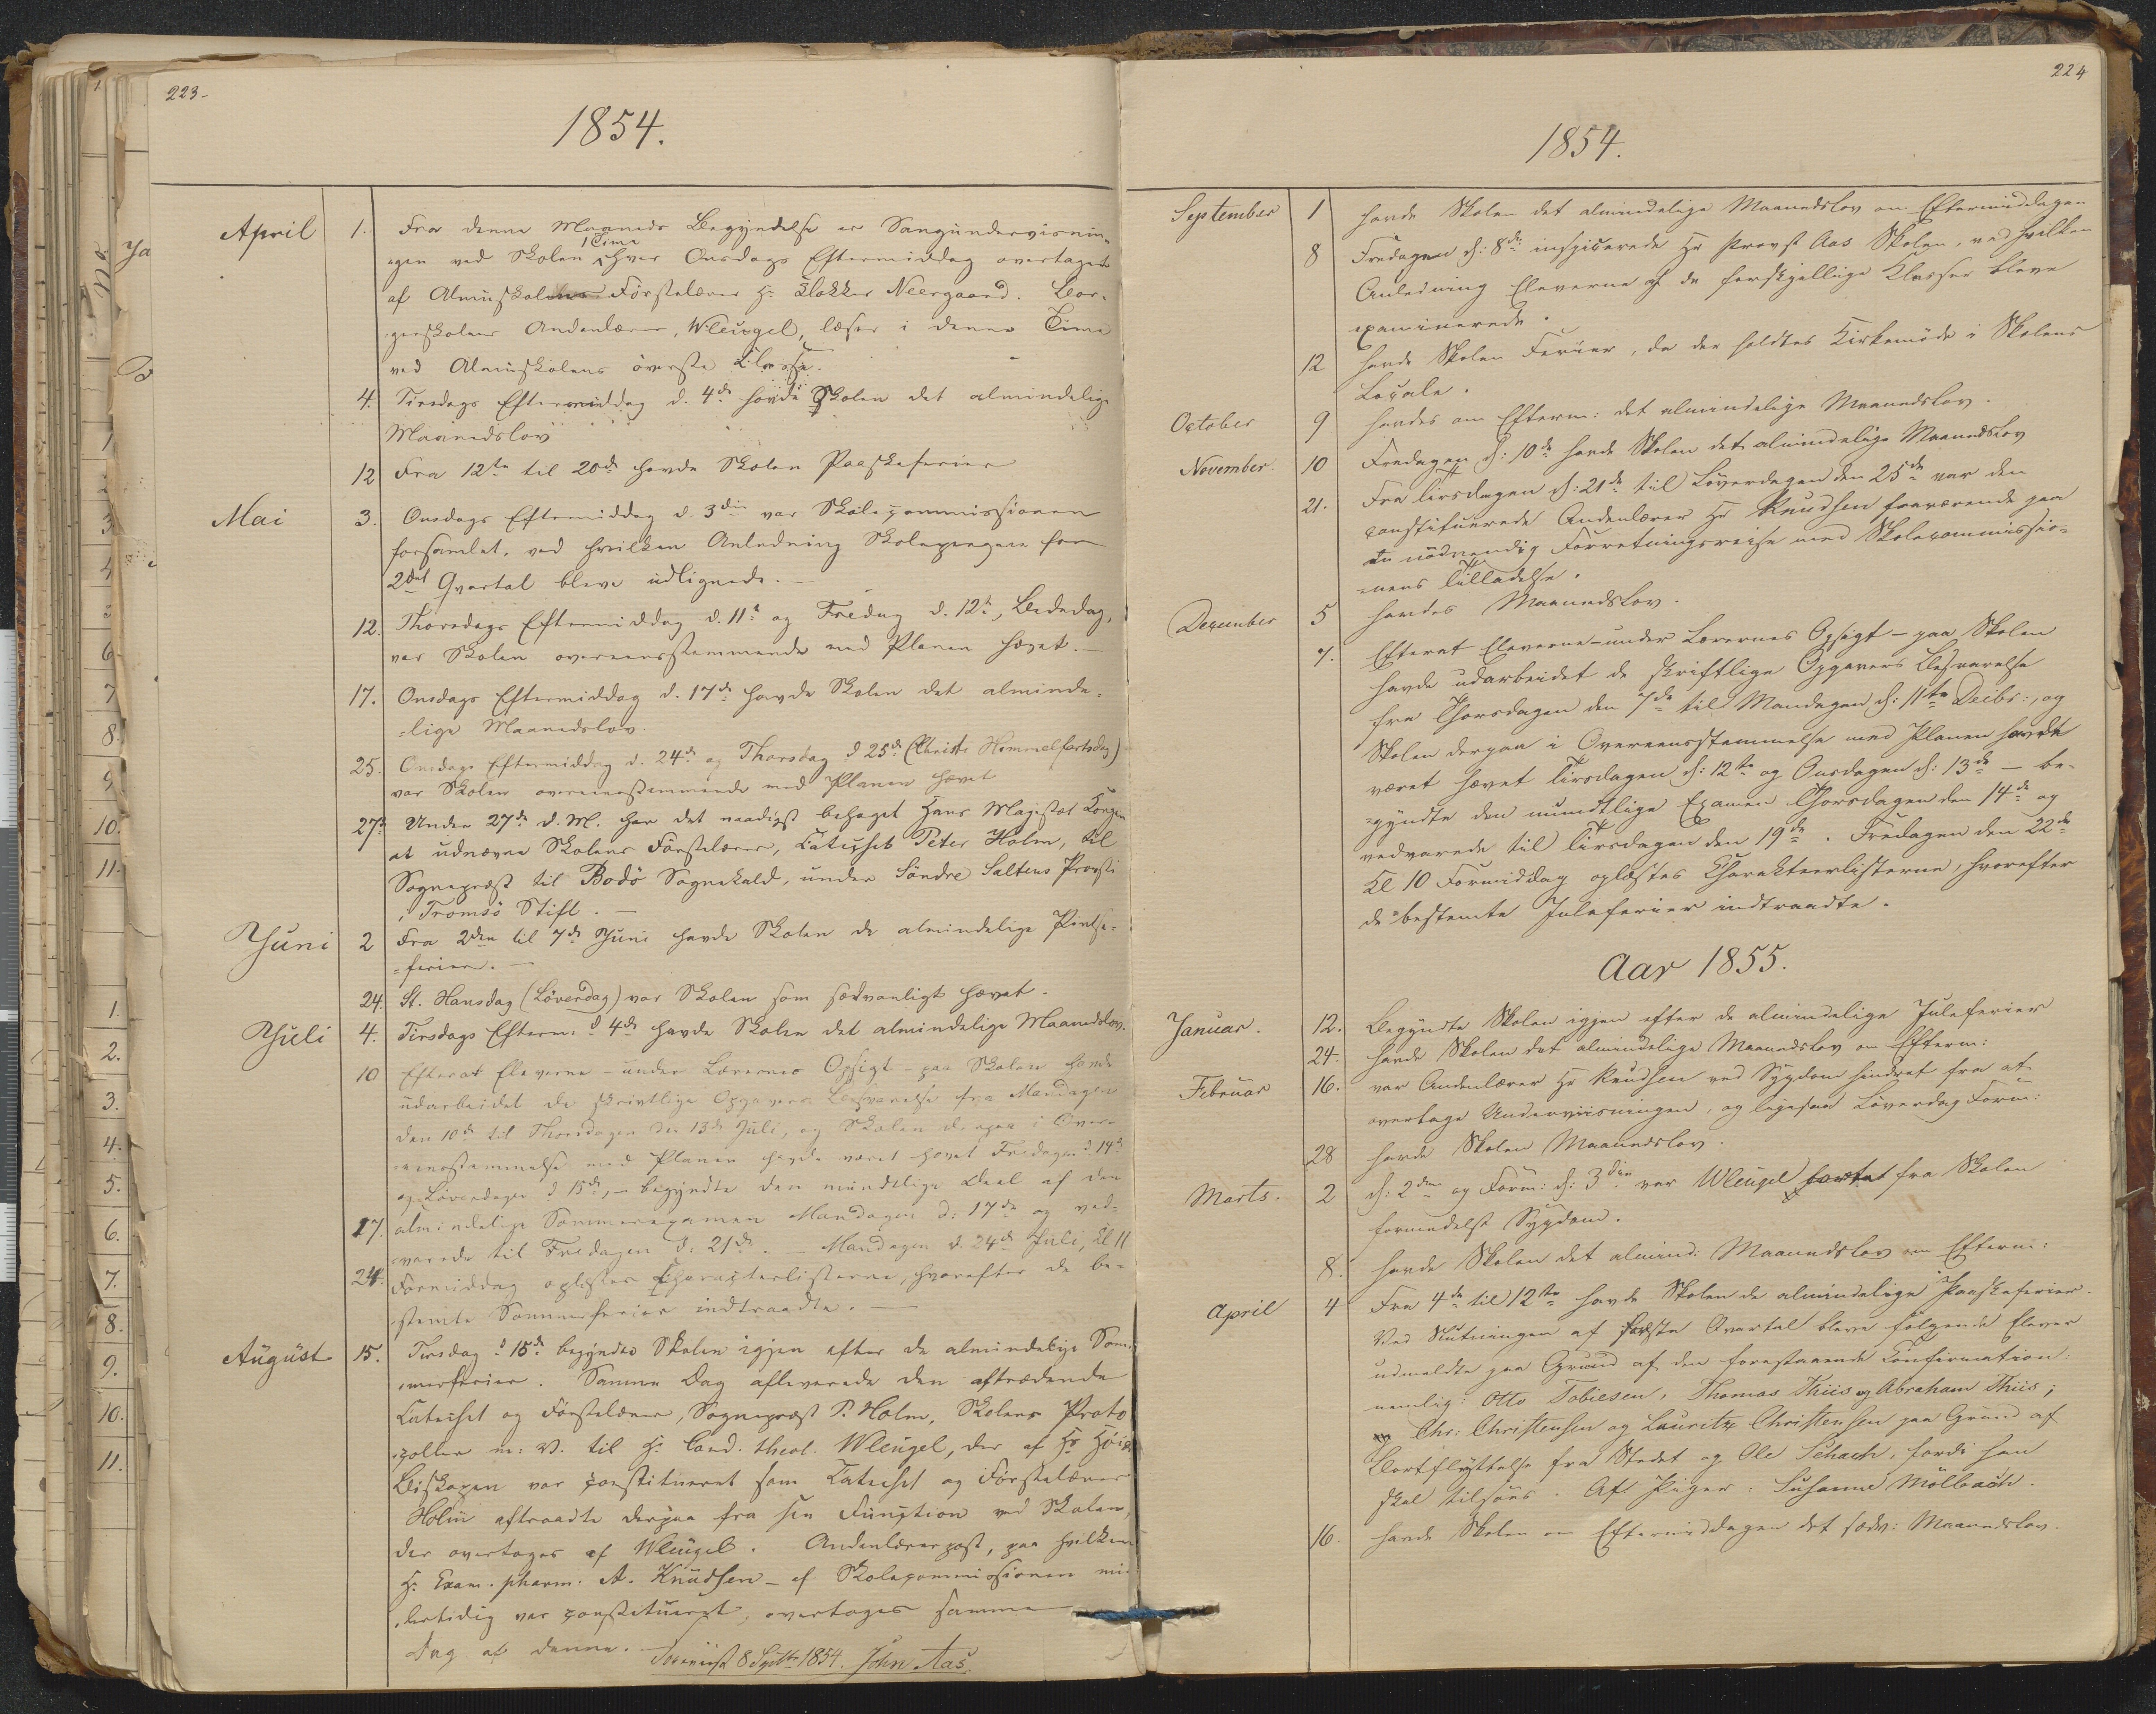 223-
1854.
April 1. Fra denne Maaneds Begyndelse er Sangundervisnin-
gen ved Skolen 1 Time hver Onsdags Eftermiddag overtaget
af Almuskolens Förstelærer Hr. Klokker Neergaard. Bor-
gerskolens Andenlærer, Wleugel, læser i denne Time
ved Almuskolens överste Klasse.
4. Tirsdags Eftermiddag d. 4de havde Skolen det almindelige
Maanedslov
12 Fra 12te til 20de havde Skolen Paaskeferier
Mai 3. Onsdags Eftermiddag d. 3die var Skolecommissionen
forsamlet, ved hvilken Anledning Skolepengene for
2det Qvartal bleve udlignede.
12. Thorsdags Eftermiddag d. 11te og Fredag d. 12te, Bededag,
var Skolen overeensstemmende med Planen hævet.
17. Onsdags Eftermiddag d. 17de havde Skolen det alminde-
lige Maanedslov.
25. Onsdags Eftermiddag d. 24de og Thorsdag d 25de (Christi Himmelfartsdag)
var Skolen overeensstemmende med Planen hævet
27de Under 27de d. M. har det naadigst behaget Hans Majestæt Kongen
at udnævne Skolens Förstelærer, Catechet Peter Holm, til
Sognepræst til Bodö Sognekald, under Söndre Saltens Provsti
i Tromsö Stift.
Juni 2 Fra 2den til 7de Juni havde Skolen de almindelige Pintse-
ferier.
24. St. Hansdag (Löverdag) var Skolen som sædvanligt hævet.
Juli 4. Tirsdags Efterm: d 4de havde Skolen det almindelige Maanedslov.
10 Efterat Eleverne - under Lærernes Opsigt - paa Skolen havde
udarbeidet de skriftlige Opgavers Besvarelse fra Mandagen
den 10de til Thorsdagen den 13de Juli, og Skolen derpaa i Over-
eensstemmelse med Planen havde været hævet Fredagen d 14de
og Löverdagen d 15de, - begyndte den mundtlige Deel af den
17. almindelige Sommerexamen Mandagen d: 17de og ved-
varede til Fredagen d: 21de. - Mandagen d. 24de Juli, Kl 11
24. Formiddag oplæstes Characterlisterne, hvorefter de be-
stemte Sommerferier indtraadte.
August 15. Tirsdag d 15de begyndte Skolen igjen efter de almindelige Som-
merferier. Samme Dag afleverede den aftrædende
Catechet og Förstelærer, Sognepræst P. Holm, Skolens Proto-
coller m: v. til Hr. Cand. theol. Wleugel, der af Hr
Biskopen var constitueret som Catechet og Förstelærer
Holm aftraadte derpaa fra sin Function ved Skolen,
der overtoges af Wleugel. Andenlærerpost, paa hvilken
Hr. Exam. pharm. A. Knudsen - af Skolecommissionen mid-
lertidig var constitueret, overtoges samme
Dag af denne.
8 Septbr 1854. John Aas.
224
1854.
September 1 havde Skolen det almindelige Maanedslov om Eftermiddagen
8 Fredagen d: 8de inspicerede Hr Provst Aas Skolen, ved hvilken
Anledning Eleverne af de forskjellige Klasser bleve
examinerede.
12 havde Skolen Ferier, da der holdtes Kirkemöde i Skolens
Locale.
October 9 havdes om Efterm: det almindelige Maanedslov.
November. 10 Fredagen d: 10de havde Skolen det almindelige Maanedslov
21. Fra Tirsdagen d: 21de til Löverdagen den 25de var den
constituerede Andenlærer Hr Knudsen fraværende paa
en nödvendig Forretningsreise med Skolecommissio-
nens Tilladelse.
December 5 havdes Maanedslov.
7. Efterat Eleverne - under Lærernes Opsigt - paa Skolen
havde udarbeidet de skriftlige Opgavers Besvarelse
fra Thorsdagen den 7de til Mandagen d: 11te Decbr:, og
Skolen derpaa i Overeensstemmelse med Planen havde
været hævet Tirsdagen d: 12te og Onsdagen d: 13de - be-
gyndte den mundtlige Examen Thorsdagen den 14de og
vedvarede til Tirsdagen den 19de. Fredagen den 22de
Kl 10 Formiddag oplæstes Charakteerlisterne, hvorefter
de bestemte Juleferier indtraadte.
Aar 1855.
Januar. 12. Begyndte Skolen igjen efter de almindelige Juleferier
24. havde Skolen det almindelige Maanedslov om Efterm:
Februar 16. var Andenlærer Hr Knudsen ved Sygdom hindret fra at
overtage Underviisningen, og ligesaa Löverdag Form:
28 havde Skolen Maanedslov.
Marts. 2 d: 2den og Form: d: 3die var Wleugel fra Skolen
formedelst Sygdom.
8. havde Skolen det almind: Maanedslov om Efterm:
April 4 Fra 4de til 12te havde Skolen de almindelige Paaskeferier.
Ved Slutningen af förste Qvartal bleve fölgende Elever
udmeldte paa Grund af den forestaaende Confirmation:
nemlig: Otto Tobiesen, Thomas Thiis og Abraham Thiis;
Chr: Christensen og Lauritz Christensen paa Grund af
Bortflyttelse fra Stedet og Ole Schach, fordi han
skal tilsöes. Af Piger: Susanne Mölbach.
16. havde Skolen om Eftermiddagen det sædv: Maanedslov.